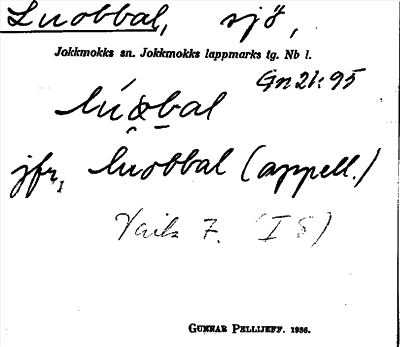 Luobbal, sjö,
Jokkmokks sn. Jokkmokks lappmarks tg. Nb l.
Gn 21:95
lúo̭ba̱l
jfr, luobbal (appell.)
7. (I 8)
GUNNAR PELLIJEFF. 1956.